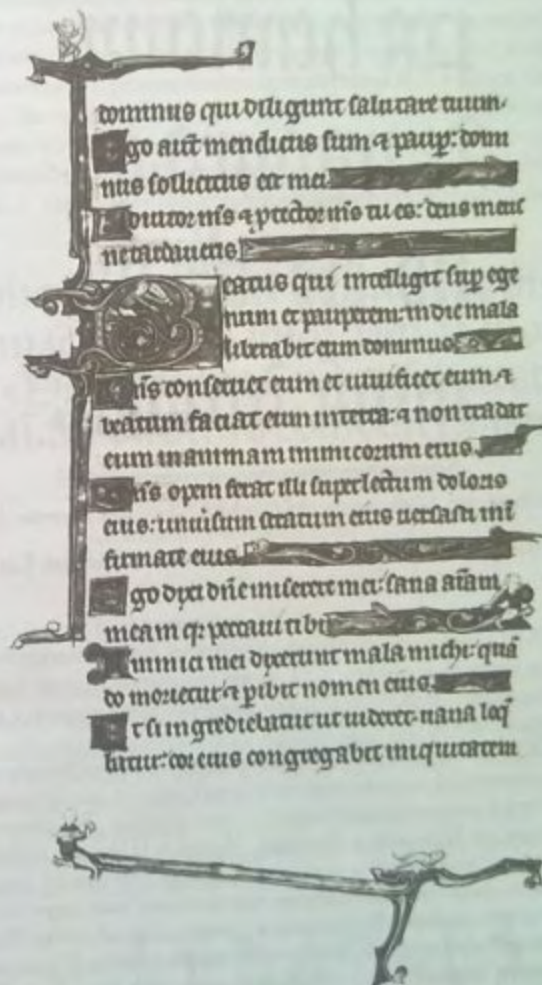 dominus qui diligunt salutare tuum
Ego autē mendicus sum ⁊ paup: domi
nus sollicitus est mei
Adiutor ms ⁊ ptector ms tu es: deus meus
ne tardaueris
Beatus qui intelligit sup ege
num et pauperem: in die mala
liberabit eum dominus
Dns conseruet eum et uiuificet eum ⁊
beatum faciat eum in terra: ⁊ non tradat
eum in animam inimicorum eius
Dns opem ferat illi super lectum doloris
eius: uniuersum stratum eius uersasti in ī
firmitate eius
Ego dixi dn̄e miserere mei: sana aīam
meam qr peccaui tibi
Inimici mei dixerunt mala michi: quā
do morietur ⁊ pibit nomen eius
Et si ingrediebatur ut uideret uana loq̄
batur: cor eius congregabit iniquitatem